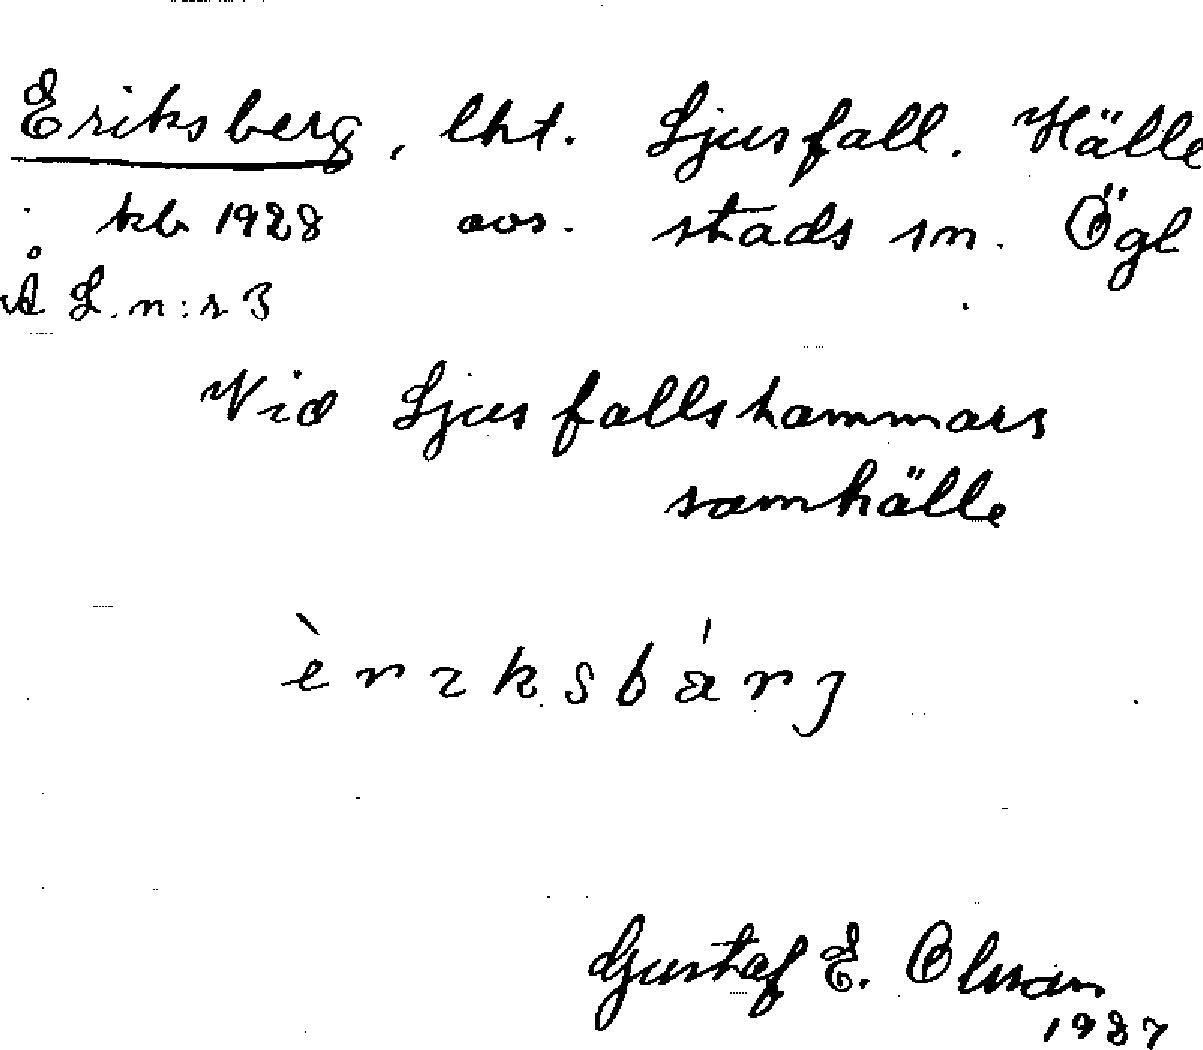 Eriksberg, lht. Ljusfall. Hälle
kb 1928 avs. stads sn. Ögl
Å L. n:r 3
Vid Ljusfallshammars
samhälle
èriksbárj
Gustaf E. Olsson
1937